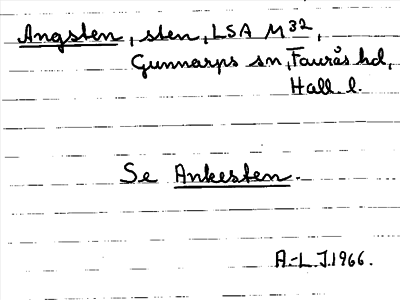 Angsten, sten, LSA M32,
Gunnarps sn, Faurås hd,
Hall. l.
Se Ankesten.
A.-L.J. 1966.